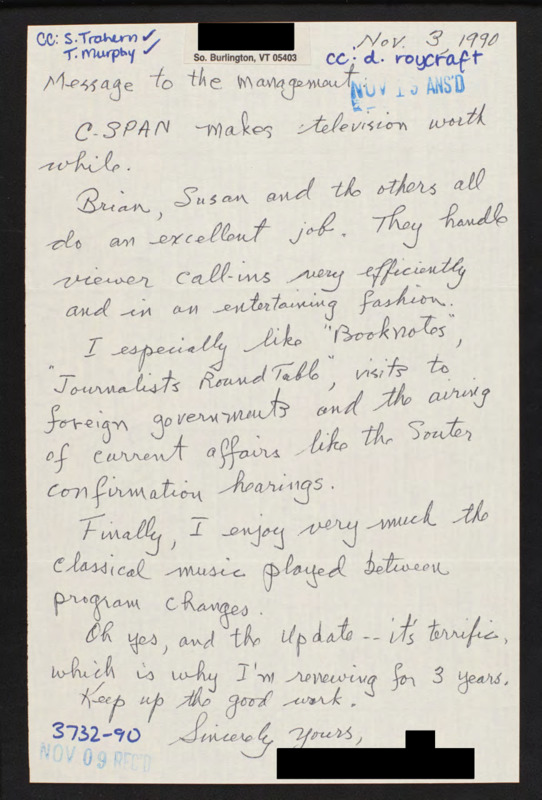 CC: S. Trahern ✓
T. Murphy ✓
So. Burlington, VT 05403
Nov. 3, 1990
CC: d. roycraft
Message to the management
NOV 15 ANS'D
C-SPAN makes television worth
while.
Brian, Susan and the others all
do an excellent job. They handle
viewer call-ins very efficiently
and in an entertaining fashion.
I especially like "Booknotes",
"Journalists Round Table", visits to
foreign governments and the airing
of current affairs like the Souter
confirmation hearings.
Finally, I enjoy very much the
classical music played between
program changes.
Oh yes, and the Update -- it's terrific,
which is why I'm renewing for 3 years.
Keep up the good work.
3732-90
Sincerely yours,
NOV 09 REC'D